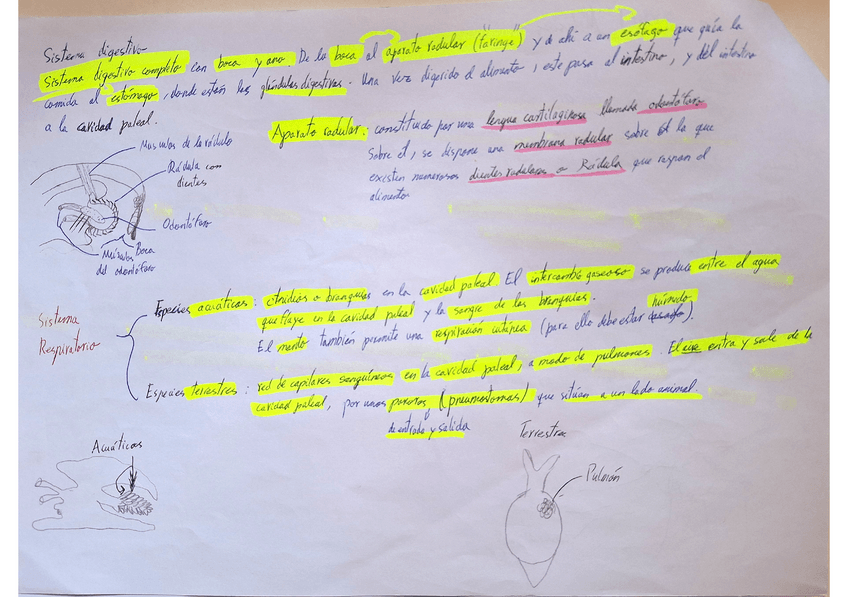 Sistema digestivo
Sistema digestivo completo con boca y ano. De la boca al aparato radular (faringe) y de ahí a un esófago que guía la
comida al estómago, donde están las glándulas digestivas. Una vez digerido el alimento, este pasa al intestino, y del intestino
a la cavidad paleal.
Aparato radular: constituido por una lengua cartilaginosa llamada odontóforo
Sobre él, se dispone una membrana radular sobre la que
existen numerosos dientes radulares o Rádula que raspan el
alimento
Musculos de la rádula
Rádula con
dientes
Odontóforo
Boca
Músculos
del odontóforo
Sistema
Respiratorio
Especies acuáticas: ctnidios o branquias en la cavidad paleal. El intercambio gaseoso se produce entre el agua
que fluye en la cavidad paleal y la sangre de las branquias.
húmedo
El manto también permite una respiración cutánea (para ello debe estar).
Especies terrestres: red de capilares sanguíneos en la cavidad paleal, a modo de pulmones. El aire entra y sale de la
cavidad paleal, por unos poros (pneumostomas) que sitúan a un lado animal.
de entrada y salida
Acuáticos
Terrestre
Pulmón